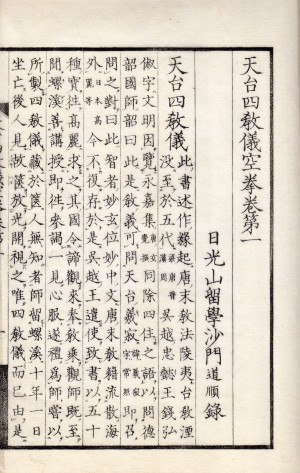 天台四教儀空拳卷第一
日光山留學沙門道順錄
天台四教儀此書述作緣起唐末教法陵夷台教湮
没至于五代梁唐晉漢周吳越忠懿王錢弘
俶字文明因覽永嘉集唐玄覺撰同除四住之語以問德
韶國師韶曰此是教義可問天台義寂諱義寂字常照即召
問之對曰此智者妙玄位妙中文唐末教籍流散海
外日本高麗等今不復存於是吳越王遣使致書以五十
種寶往高麗求之其國令諦觀來奉教乘觀師既至
聞螺溪善講授即往來謁一見心服遂禮爲師嘗以
所製四教儀藏於篋人無知者師留螺溪十年一日
坐亡後人見故篋放光開視之唯四教儀而已由是